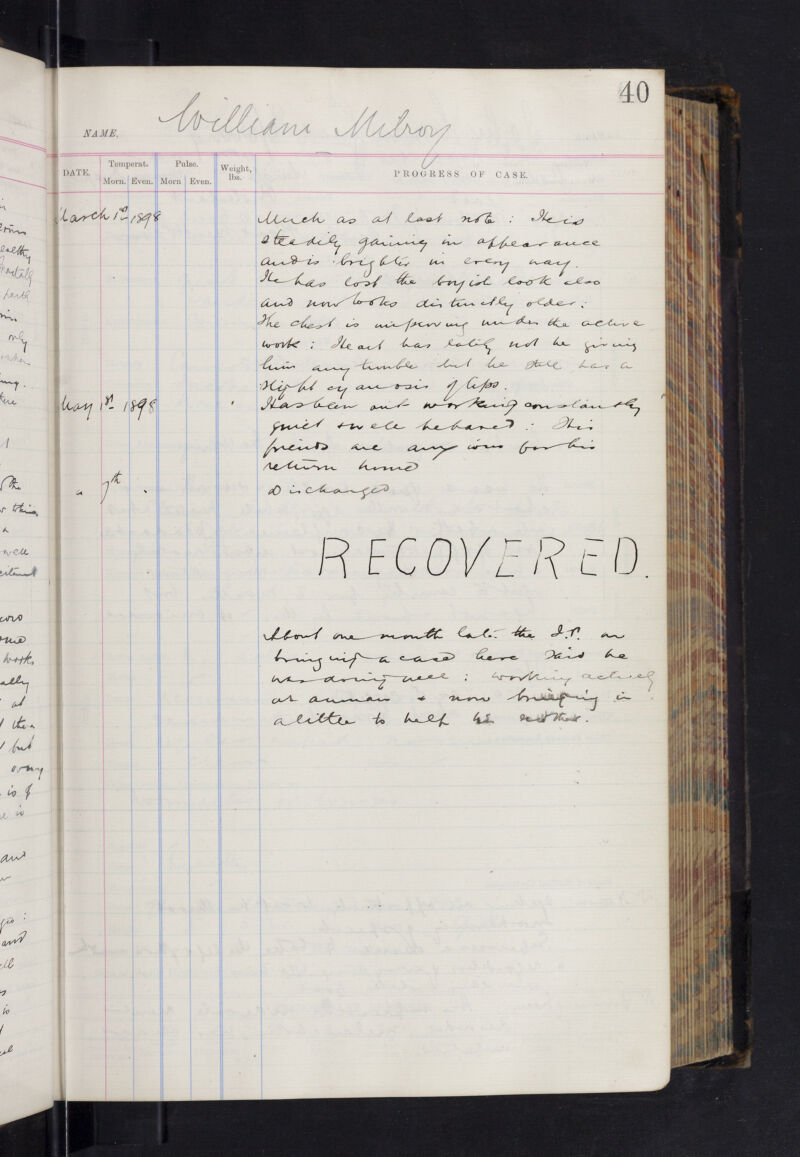 40
NAME. William Milroy
DATE. Temperat. Pulse. Weight, lbs. PROGRESS OF CASE.
Morn. Even. Morn Even.
March 1st 1898 Much as at last note : He is
steadily gaining in appearance
and is brighter in every way.
He has lost the boyish look also
and now looks distinctly older :
The chest is improving under the active
work : Heart has lately not be giving
him any trouble but he still has a
slight cyanosis of lips.
May 1st 1898 Has been out working constantly
quiet & well behaved : His
friends are anxious for his
return home
" 7th " Discharged
RECOVERED.
About one month late. the I.P. on
bringing a case here said he
was doing well : working actively
at & now bringing in
a little to help his mother.